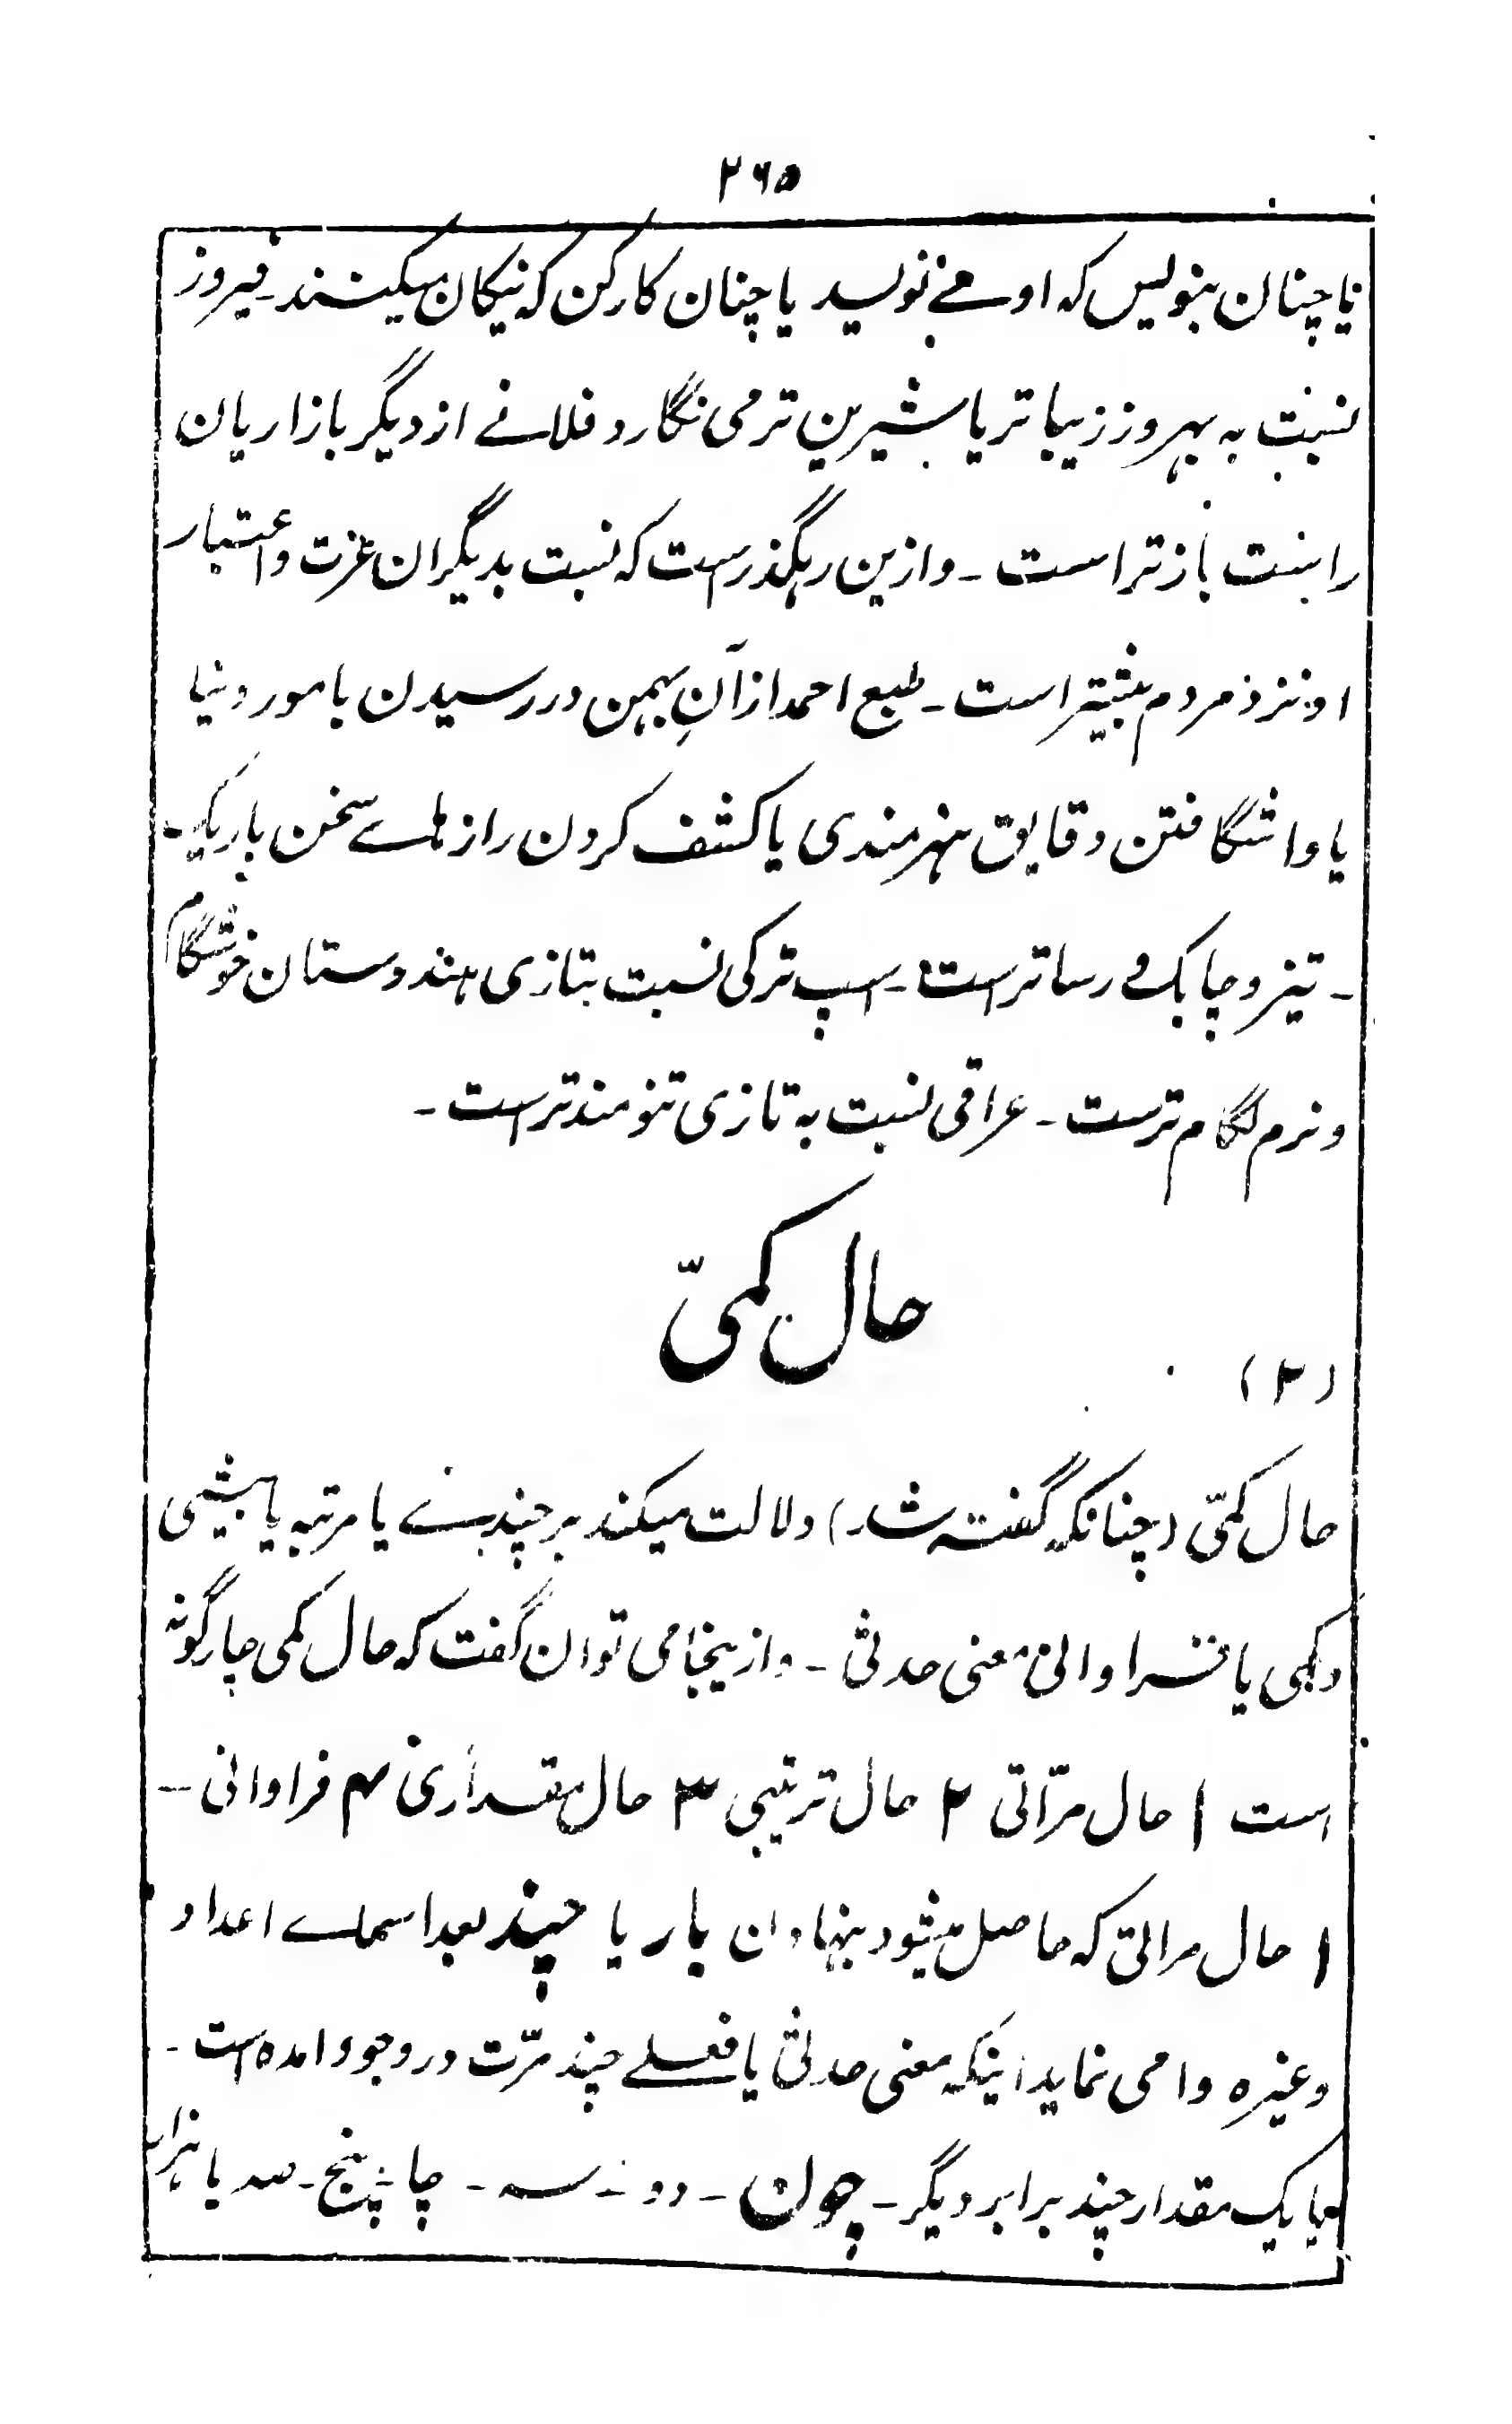 ۲۶۵
یا چنان بنویس که او مے نویسد یا چنان کار کن که نیکان میکنند - فیروز
نسبت به بهروز زیبا تر یا شیرین تر می نگارد فلانے از دیگر بازاریان
راست باز تر است - و ازین رهگذر است که نسبت بدیگران عزت و اعتبار
او نزد مردم بیشتر است - طبع احمد از آنِ بهمن در رسیدن بامور دنیا
یا واشگافتن دقایق هنرمندی یا کشف کردن رازهاے سخن باریک -
- تیز و چابک و رسا تر است - اسپ ترکی نسبت بتازی هندوستان خوشگام
و نرم لگام ترست - عراقی نسبت به تازی تنومند تر است -
حال کمیّ
(۲)
حال کمّی (چنانکه گفته شد) دلالت میکند بر چندینے یا مرتبه یا بیشی
و کمی یا فراوانی معنی حدثی - و ازینجا می توان گفت که حال کمی چار گونه
است ۱ حال مرّاتی ۲ حال ترتیبی ۳ حال مقداری ۴ فراوانی -
۱ حال مراتی که حاصل میشود بنهادن بار یا چند بعد اسماے اعداد
وغیره وا می نماید اینکه معنی حدثی یا فعلے چند مرّت در وجود امده است -
یا یک مقدار چند برابر دیگر - چون - دو - سه - چار پنج - صد یا هزار